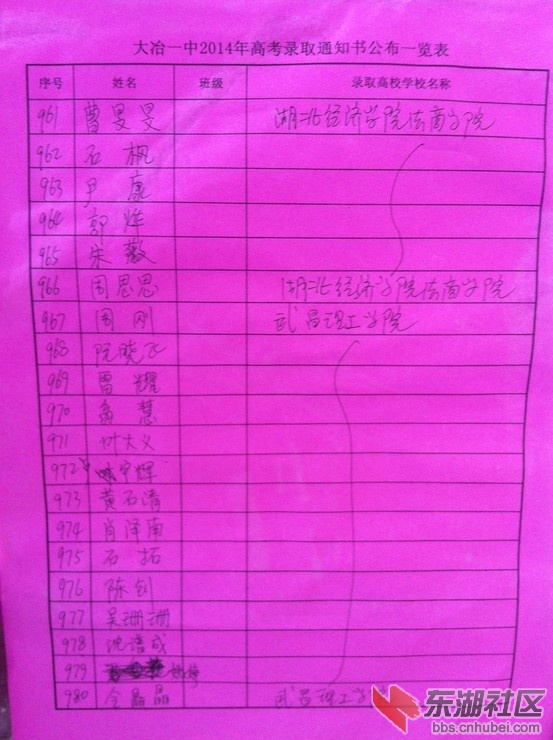 大冶一中2014年高考录取通知书公布一览表
序号 姓名 班级 录取高校学校名称
961 曹旻旻 湖北经济学院法商学院
962 石枫
963 尹康
964 郭烨
965 朱薇
966 周思思 湖北经济学院法商学院
967 周刚 武昌理工学院
968 阮晓飞
969 曹耀
970 翁慧
971 叶大义
972 宇辉
973 黄石清
974 肖泽南
975 石拓
976 陈钊
977 吴珊珊
978 沈语成
979
980 余晶晶 武昌理工学院
东湖社区
bbs.cnhubei.com